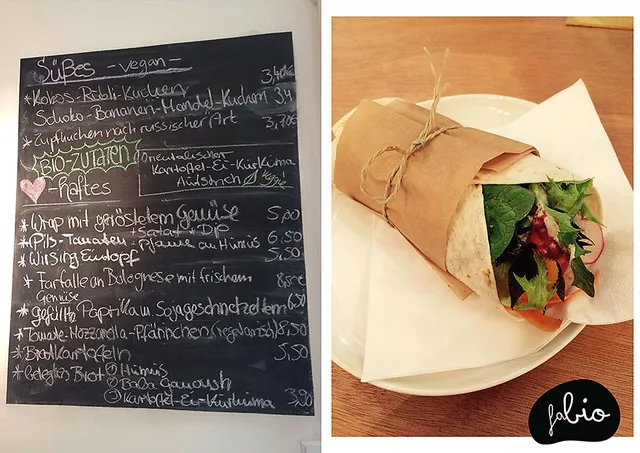 Süßes - vegan -
* Kokos-Rübli-Kuchen 3,40€
* Schoko-Bananen-Mandel-Kuchen 3,4
* Zupfkuchen nach russischer Art 3,70€
BIO-ZUTATEN
Orientalischer
Kartoffel-Ei-Kurkuma
Aufstrich
Veggie
-haftes
* Wrap mit geröstetem Gemüse 5,00
+ Salat + Dip
* Pilz-Tomaten-Pfanne an Humus 6,50
* Wirsing Eintopf 5,50
* Farfalle an Bolognese mit frischem
Gemüse
* gefüllte Paprika m. Sojageschnetzeltem 6,50
* Tomate-Mozzarella-Pfännchen (vegetarisch) 8,50
* Bratkartoffeln 5,50
* belegtes Brot ① Humus
② Baba Ganoush
③ Kartoffel-Ei-Kurkuma
fabio